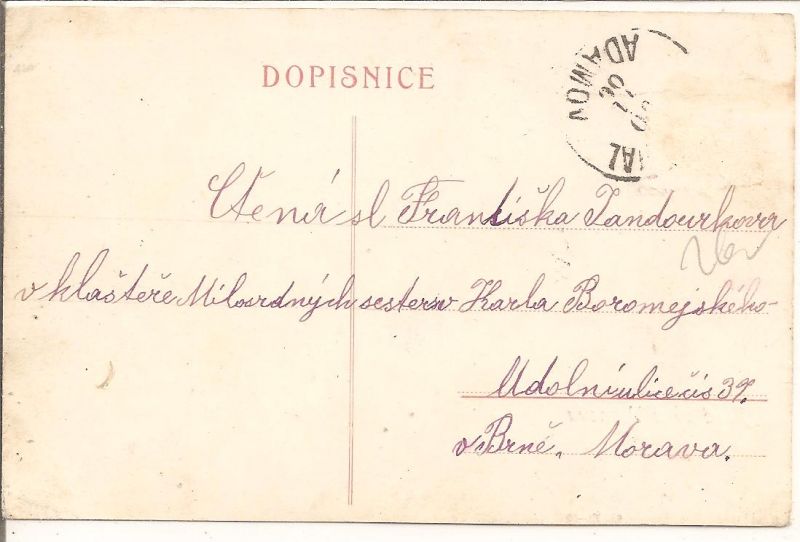 DOPISNICE
ADAMOV
Ctená sl Františka Jandourkova
v klašteře Milosrdných sester v Karla Boromejského-
Udolní ulice čis 39.
v Brně. Morava.